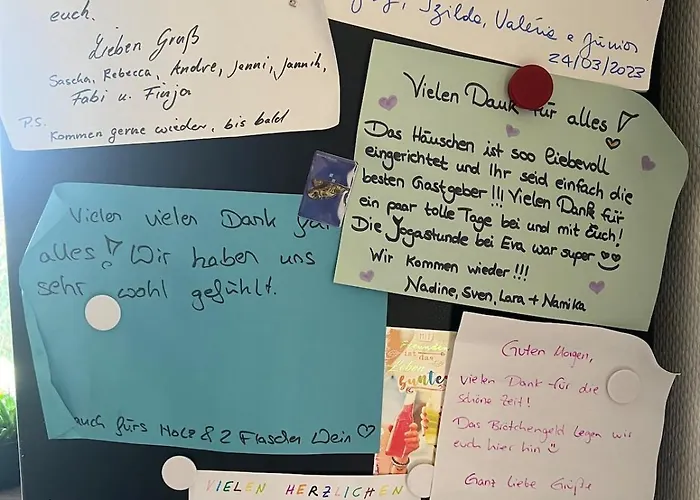 euch.
Lieben Gruß
Sascha, Rebecca, Andre, Janni, Jannik,
Fabi u. Finja
P.S.
Kommen gerne wieder, bis bald
Izilda, Valéria e Júnior
24/03/2023
Vielen Dank für alles!
Das Häuschen ist soo liebevoll
eingerichtet und Ihr seid einfach die
besten Gastgeber!!! Vielen Dank für
ein paar tolle Tage bei und mit Euch!
Die Yogastunde bei Eva war super
Wir kommen wieder!!!
Nadine, Sven, Lara + Namika
Vielen vielen Dank für
alles! Wir haben uns
sehr wohl gefühlt.
auch fürs Holz & 2 Flaschen Wein
Freunden
ist das
Leben
bunter
Guten Morgen,
vielen Dank für die
schöne Zeit!
Das Brötchengeld legen wir
euch hier hin
Ganz liebe Grüße
VIELEN HERZLICHEN